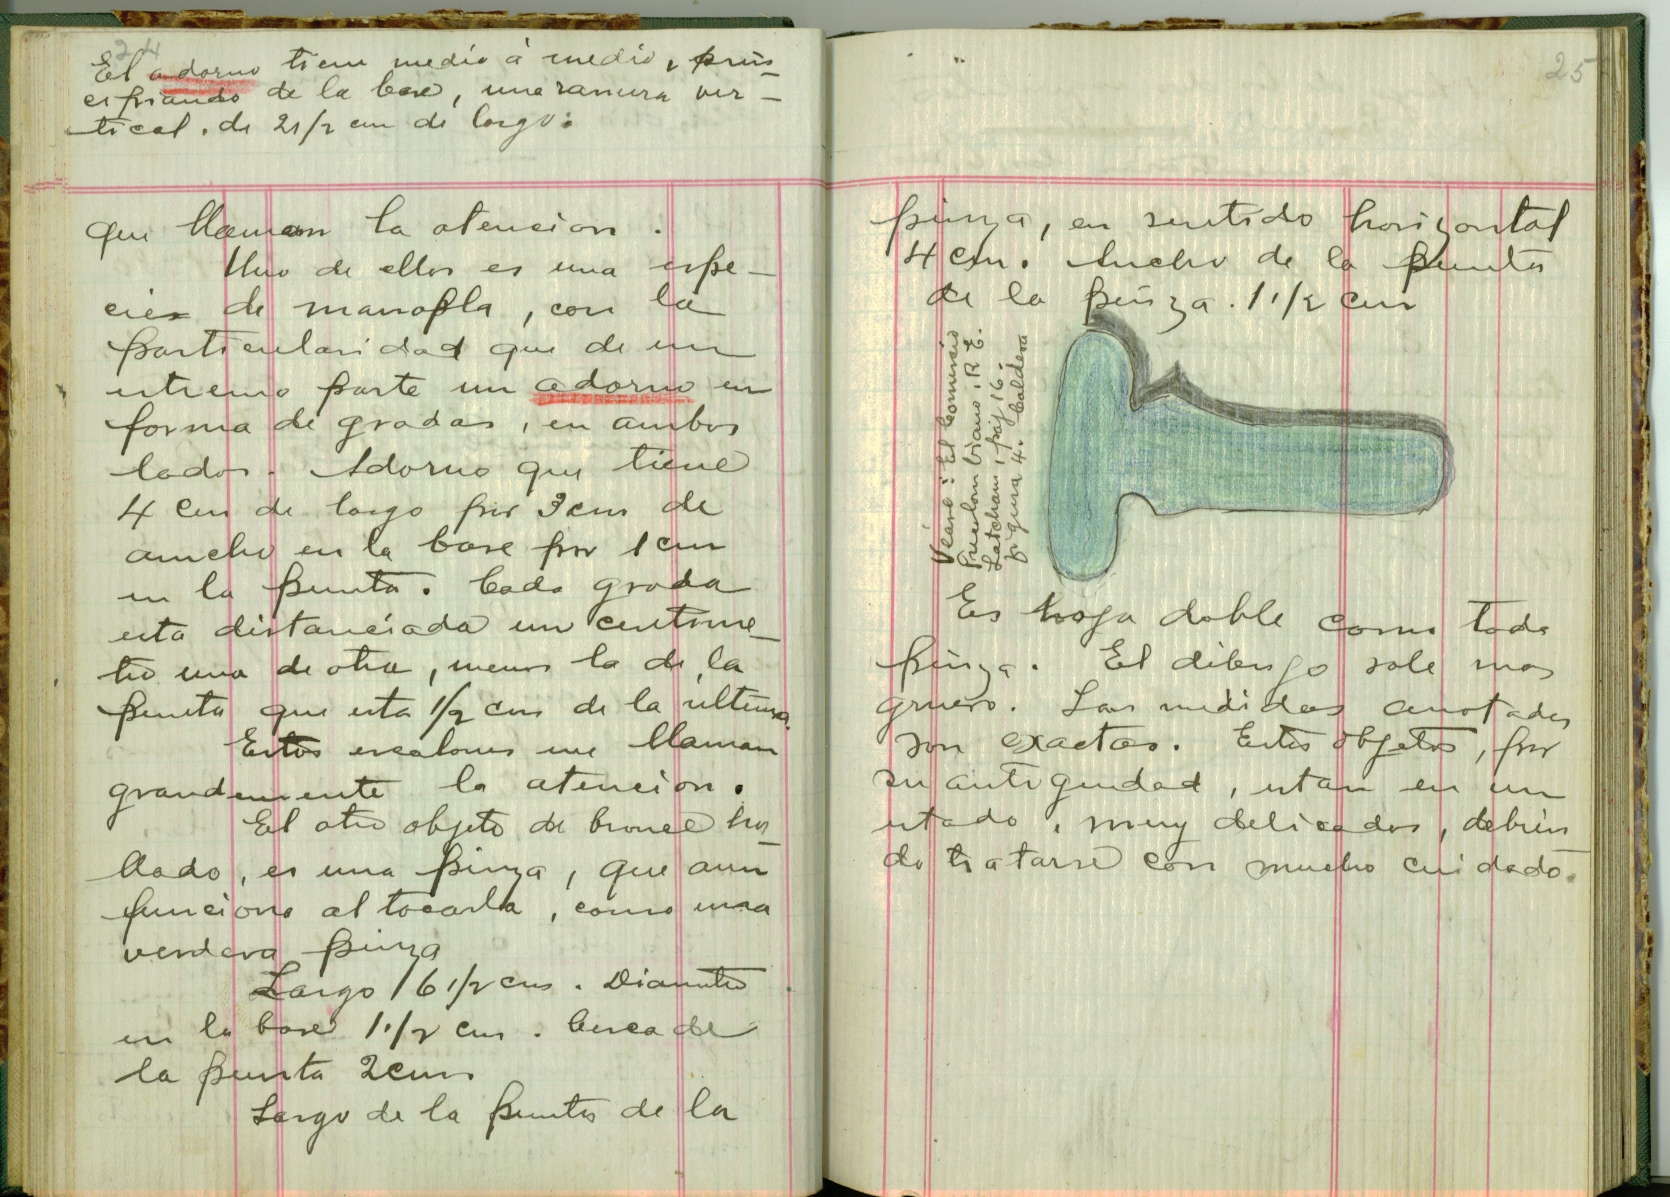 24
El adorno tiene medio á medio, prin-
cipiando de la base, una ranura ver-
tical. de 2 1/2 cm de largo.
que llaman la atencion.
Uno de ellos es una espe-
cie de manopla, con la
particularidad que de un
estremo parte un adorno en
forma de gradas, en ambos
lados. Adorno que tiene
4 cm de largo por 3 cm de
ancho en la base por 1 cm
en la punta. Cada grada
esta distanciada un centime-
tro una de otra, menos la de la
punta que esta 1/2 cm de la ultima.
Estos escalones me llaman
grandemente la atencion.
El otro objeto de bronce ha-
llado, es una pinza, que aun
funciona al tocarla, como una
verdera pinza
Largo 6 1/2 cm. Diametro
en la base 1 1/2 cm. Cerca de
la punta 2 cm.
Largo de la punta de la
25
pinza, en sentido horizontal
4 cm. Ancho de la punta
de la pinza. 1 1/2 cm
Véase: El Comercio
Precolombiano, R. E.
Latcham, pág 16.
figura 4. Caldera
Es hoja doble como toda
pinza. El dibujo sale mas
grueso. Las medidas anotadas
son exactas. Estos objetos, por
su antiguedad, estan en un
estado, muy delicados, debien
do tratarse con mucho cuidado.